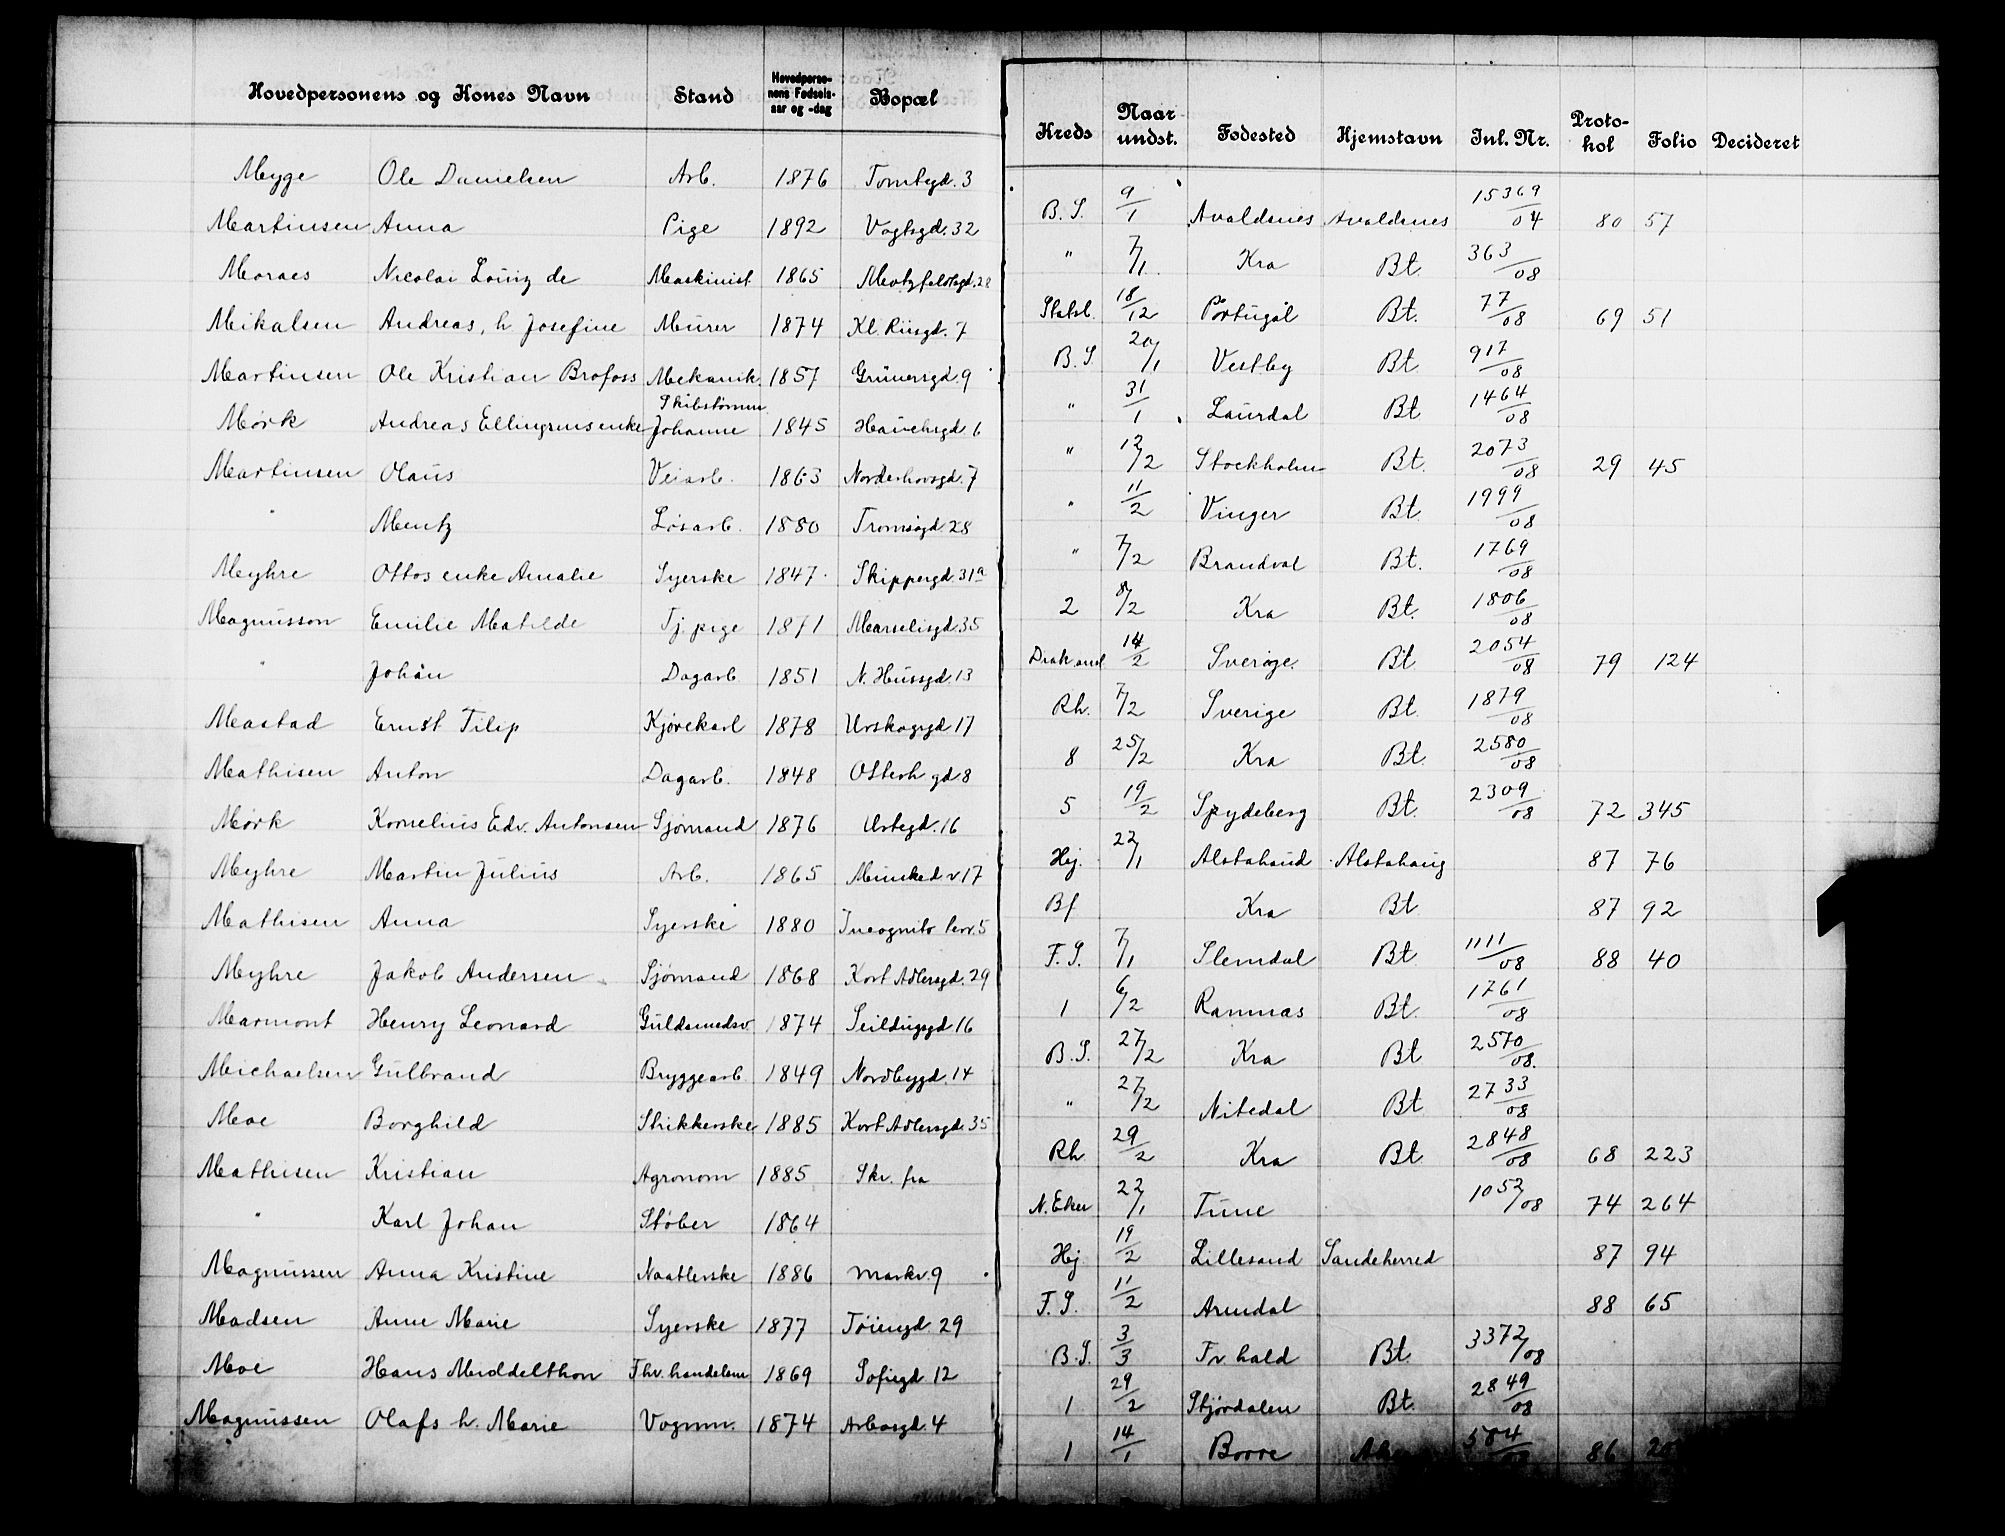 Hovedpersonens og Kones Navn Stand Hovedperso-nens Fødsels-aar og -dag Bopæl Kreds Naar undst. Fødested Hjemstavn Inl. Nr. Proto-kol Folio Decideret
Myge Ole Danielsen Arb. 1876 Tomtegd. 3 B. S. 9/1 Avaldsnes Avaldsnes 15369/04 80 57
Martinsen Anna Pige 1892 Vogtsgd. 32 " 7/1 Kra Bt. 363/08
Moraes Nicolai Louiz de Maskinist 1865 Motzfeldtsgd. 28 Statsb. 18/12 Portugal Bt. 77/08 69 51
Mikalsen Andreas, h Josefine Murer 1874 Kl. Riisgd. 7 B. S 20/1 Vestby Bt 917/08
Martinsen Ole Kristian Brofoss Mekanik. 1857 Grünersgd. 9 " 31/1 Laurdal Bt 1464/08
Mørk Andreas Ellingsens enke Johanne Skibstømm 1845 Hauchsgd 6 " 12/2 Stockholm Bt. 2073/08 29 45
Martinsen Olaus Veiarb. 1863 Norderhovsgd. 7 " 11/2 Vinger Bt 1999/08
" Mentz Løsarb. 1880 Tromsøgd. 28 " 7/2 Brandval Bt. 1769/08
Myhre Ottos enke Amalie Syerske 1847 Skippergd. 31a 2 8/2 Kra Bt. 1806/08
Magnusson Emilie Matilde Tj. pige 1871 Marselisgd. 35 Diak and 14/2 Sverige Bt 2054/08 79 124
" Johan Dagarb 1851 N. Hussgd. 13 Rh. 7/2 Sverige Bt 1879/08
Mastad Ernst Filip Kjørekarl 1878 Urskogsgd 17 8 25/2 Kra Bt. 2580/08
Mathisen Anton Dagarb. 1848 Osterh gd 8 5 19/2 Spydeberg Bt. 2309/08 72 345
Mørk Kornelius Edv. Antonsen Sjømand 1876 Urtegd. 16 Hej. 22/1 Alstahaud Alstahaug 87 76
Myhre Martin Julius Arb. 1865 Munked v 17 Bf Kra Bt 87 92
Mathisen Anna Syerske 1880 Incognito terr. 5 F. S. 7/1 Slemdal Bt 1111/08 88 40
Myhre Jakob Andersen Sjømand 1868 Kort Adlersgd. 29 1 6/2 Ramnas Bt. 1761/08
Marmont Henry Leonard Guldsmedsv 1874 Seildugsgd 16 B. S. 27/2 Kra Bt 2570/08.
Michaelsen Gulbrand Bryggearb. 1849 Nordbygd. 14 " 27/2 Nitedal Bt 2733/08
Moe Borghild Strikkerske 1885 Kort Adlersgd. 35 Rh 29/2 Kra Bt 2848/08 68 223
Mathisen Kristian Agronom 1885 Skr. fra N. Eker 22/1 Tune 1052/08 74 264
" Karl Johan Støber 1864 Hej 19/2 Lillesand Sandeherred 87 94
Magnussen Anna Kristine Naatlerske 1886 Markv. 9 F. S. 11/2 Arendal 88 65
Madsen Anne Marie Syerske 1877 Tøiengd. 29 B. S. 3/3 Fr hald Bt. 3372/08
Moe Hans Middelthon Fhv. handelsm 1869 Sofiegd 12 1 29/2 Stjørdalen Bt. 2849/08
Magnussen Olafs h. Marie Vognm. 1874 Arbosgd. 4 1 14/1 Borre 584/08 86